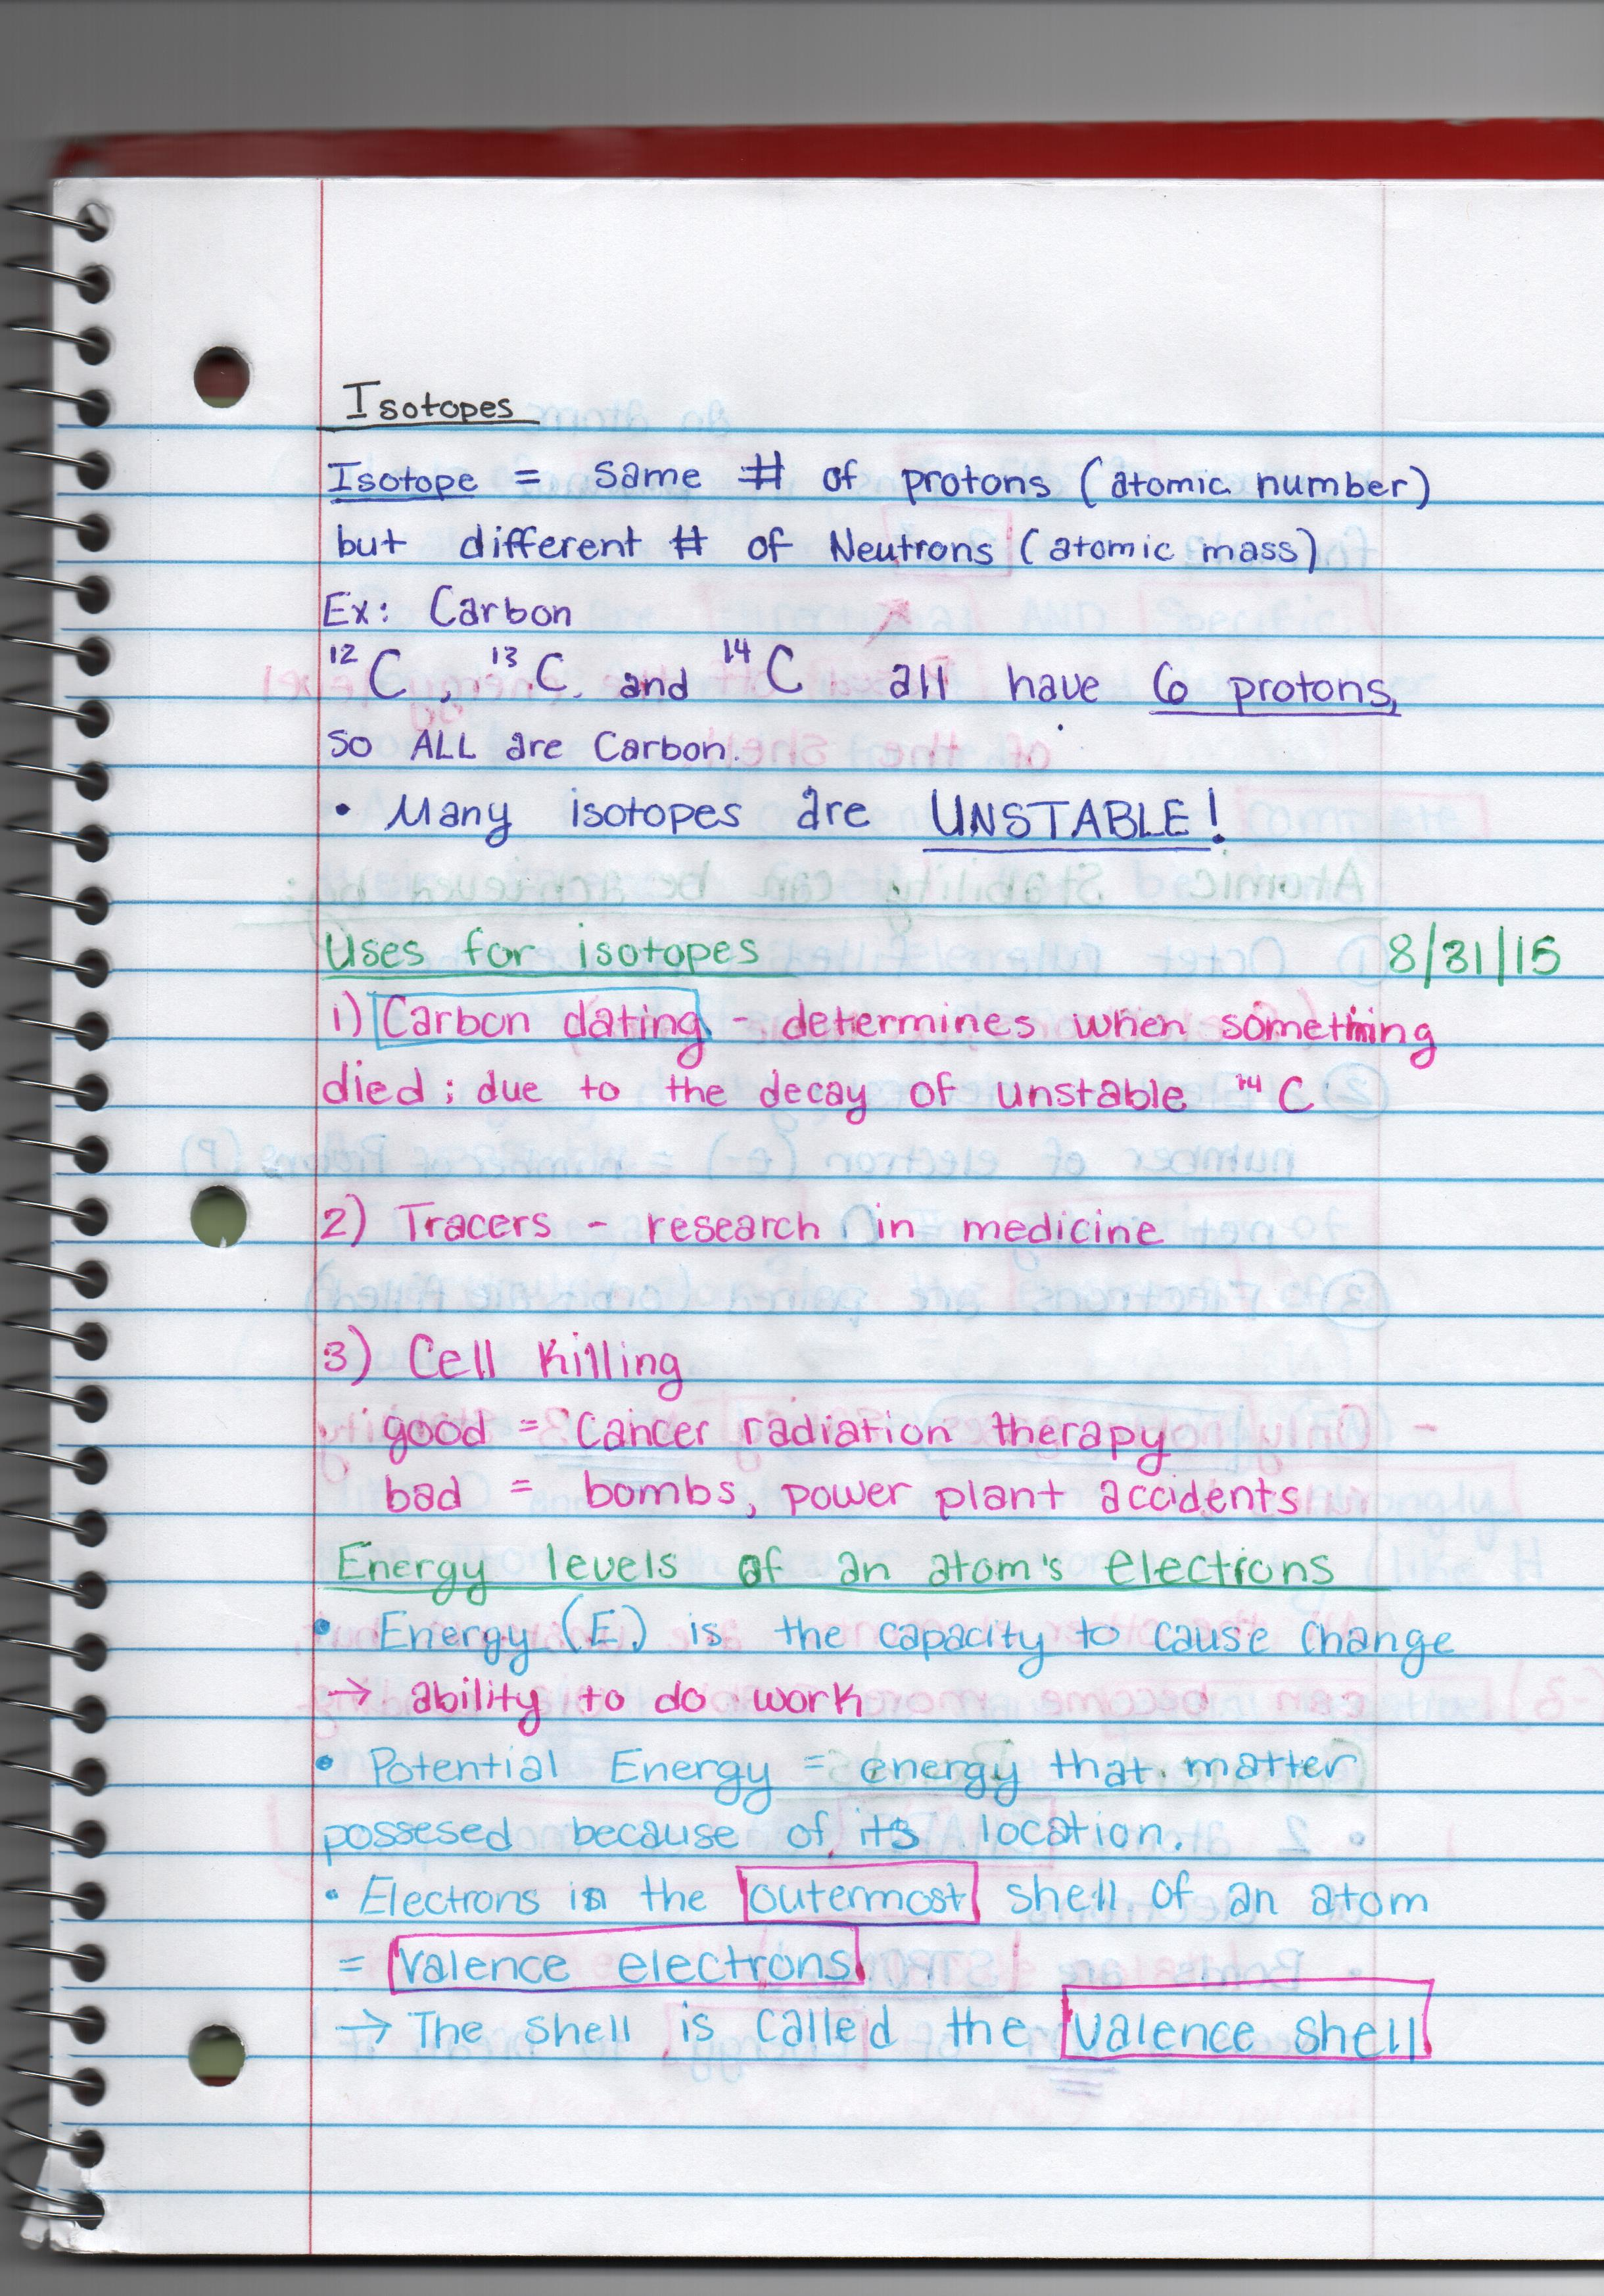 Isotopes
Isotope = same # of protons (atomic number)
but different # of Neutrons (atomic mass)
Ex: Carbon
¹²C, ¹³C, and ¹⁴C all have 6 protons,
so ALL are Carbon.
• Many isotopes are UNSTABLE!
Uses for isotopes 8/31/15
1) Carbon dating - determines when something
died; due to the decay of unstable ¹⁴C
2) Tracers - research in medicine
3) Cell Killing
good = Cancer radiation therapy
bad = bombs, power plant accidents
Energy levels of an atom's electrons
• Energy (E) is the capacity to cause change
→ ability to do work
• Potential Energy = energy that matter
possesed because of its location.
• Electrons in the outermost shell of an atom
= valence electrons
→ The shell is called the valence shell